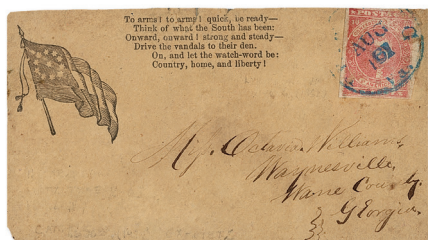 To arms! to arms! quick, be ready—
Think of what the South has been:
Onward, onward! strong and steady—
Drive the vandals to their den.
On, and let the watch-word be:
Country, home, and liberty!
AUG
Miss. Octavia Williams,
Waynesville,
Wane County.
Georgia.